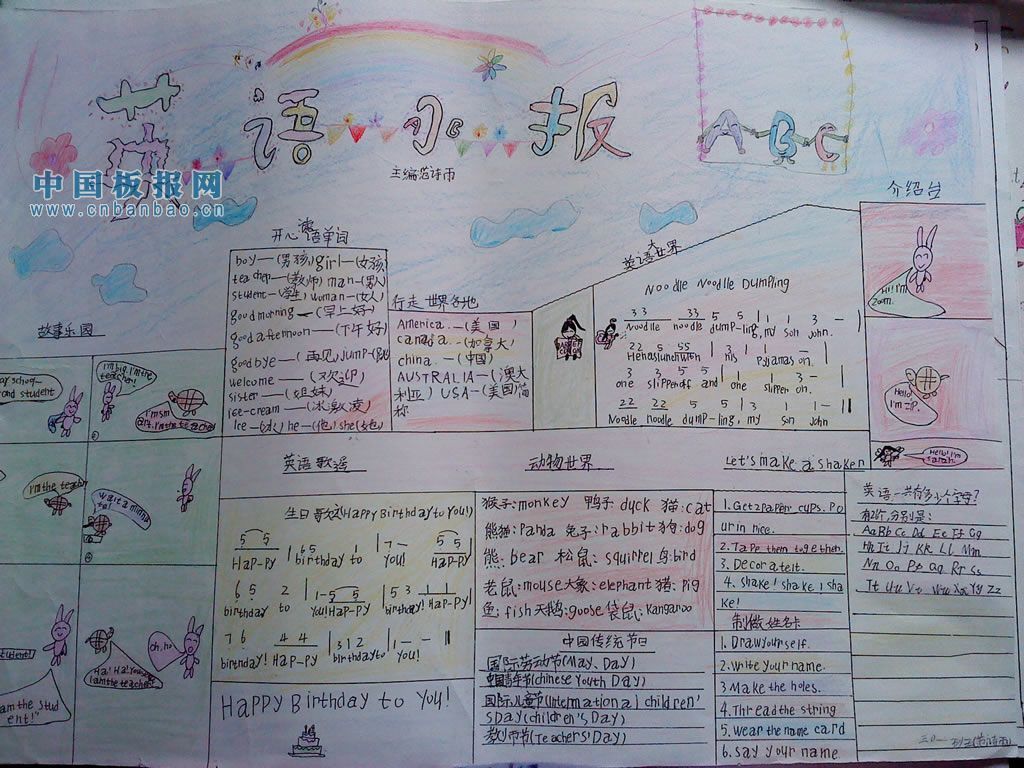 英语小报
ABC
主编范诗雨
中国板报网
www.cnbanbao.cn
介绍台
Hi! I'm
Zoom.
Hello!
I'm ZIP.
Hello! I'm
sarah.
开心英语单词
boy—(男孩)girl—(女孩)
teacher—(教师) man—(男人)
student—(学生) woman—(女人)
good morning—(早上好)
good afternoon—(下午好)
goodbye—(再见)jump—(跳)
welcome——(欢迎)
sister——(姐妹)
ice-cream——(冰激凌)
Ice—(冰)he—(他)she(她)
行走世界各地
America.—(美国)
canada.—(加拿大)
china.—(中国)
AUSTRALIA—(澳大
利亚) USA—(美国简
称
英语大世界
Noodle Noodle Dumpling
3 3 33 5 5 | 1 1 3 —
Noodle noodle dump-ling, my son john.
22 5 55 | 3 1 | 1 3 — |
He has lunch with his pyjamas on.
one slipper off and one slipper on.
22 22 5 5 | 3 1 1 — ||
Noodle noodle dump-ling, my son john
故事乐园
student
I'm big. I'm the
teacher!
I'm sm
art. I'm the teacher
I'm the teacher
wait a minu
te!
student!
am the stud
ent!"
Ha! Ha! You
I am the teacher
Oh, no
英语歌谣
生日歌欢(Happy Birthday to You!)
5 5 | 6 5 1 | 7 — 5 5
Hap-Py birthday to You! Hap-Py
6 5 2 | 1— 5 5 | 5 3 1 1
birthday to You! Hap-Py birthday! Hap-Py
7 6 4 4 | 3 1 2 | 1 — — ||
birthday! Hap-Py birthday to You!
Happy Birthday to You!
动物世界
猴子:monkey 鸭子:duck 猫:cat
熊猫:Panda 兔子:rabbit 狗:dog
熊:bear 松鼠:squirrel 鸟:bird
老鼠:mouse 大象:elephant 猪:Pig
鱼:fish 天鹅:goose 袋鼠:Kangaroo
中国传统节日
国际劳动节(May、Day)
中国青年节(chinese Youth Day)
国际儿童节(International children'
sDay(children's,Day)
教师节(Teachers'Day)
Let's make a shaker
1. Get 2 paper cups. Po
ur in rice.
2. Tape them together.
3. Decorate it.
4. shake! shake! sha
ke!
制做姓名卡
1. Draw yourself.
2. write your name.
3 Make the holes.
4. Thread the string
5. Wear the name card
6. say your name
英语一共有多少个字母?
有26个,分别是:
Aa Bb Cc Dd Ee Ff Gg
Hh Ii Jj Kk Ll Mm
Nn Oo Pp Qq Rr Ss
Tt Uu Vv Ww Xx Yy Zz